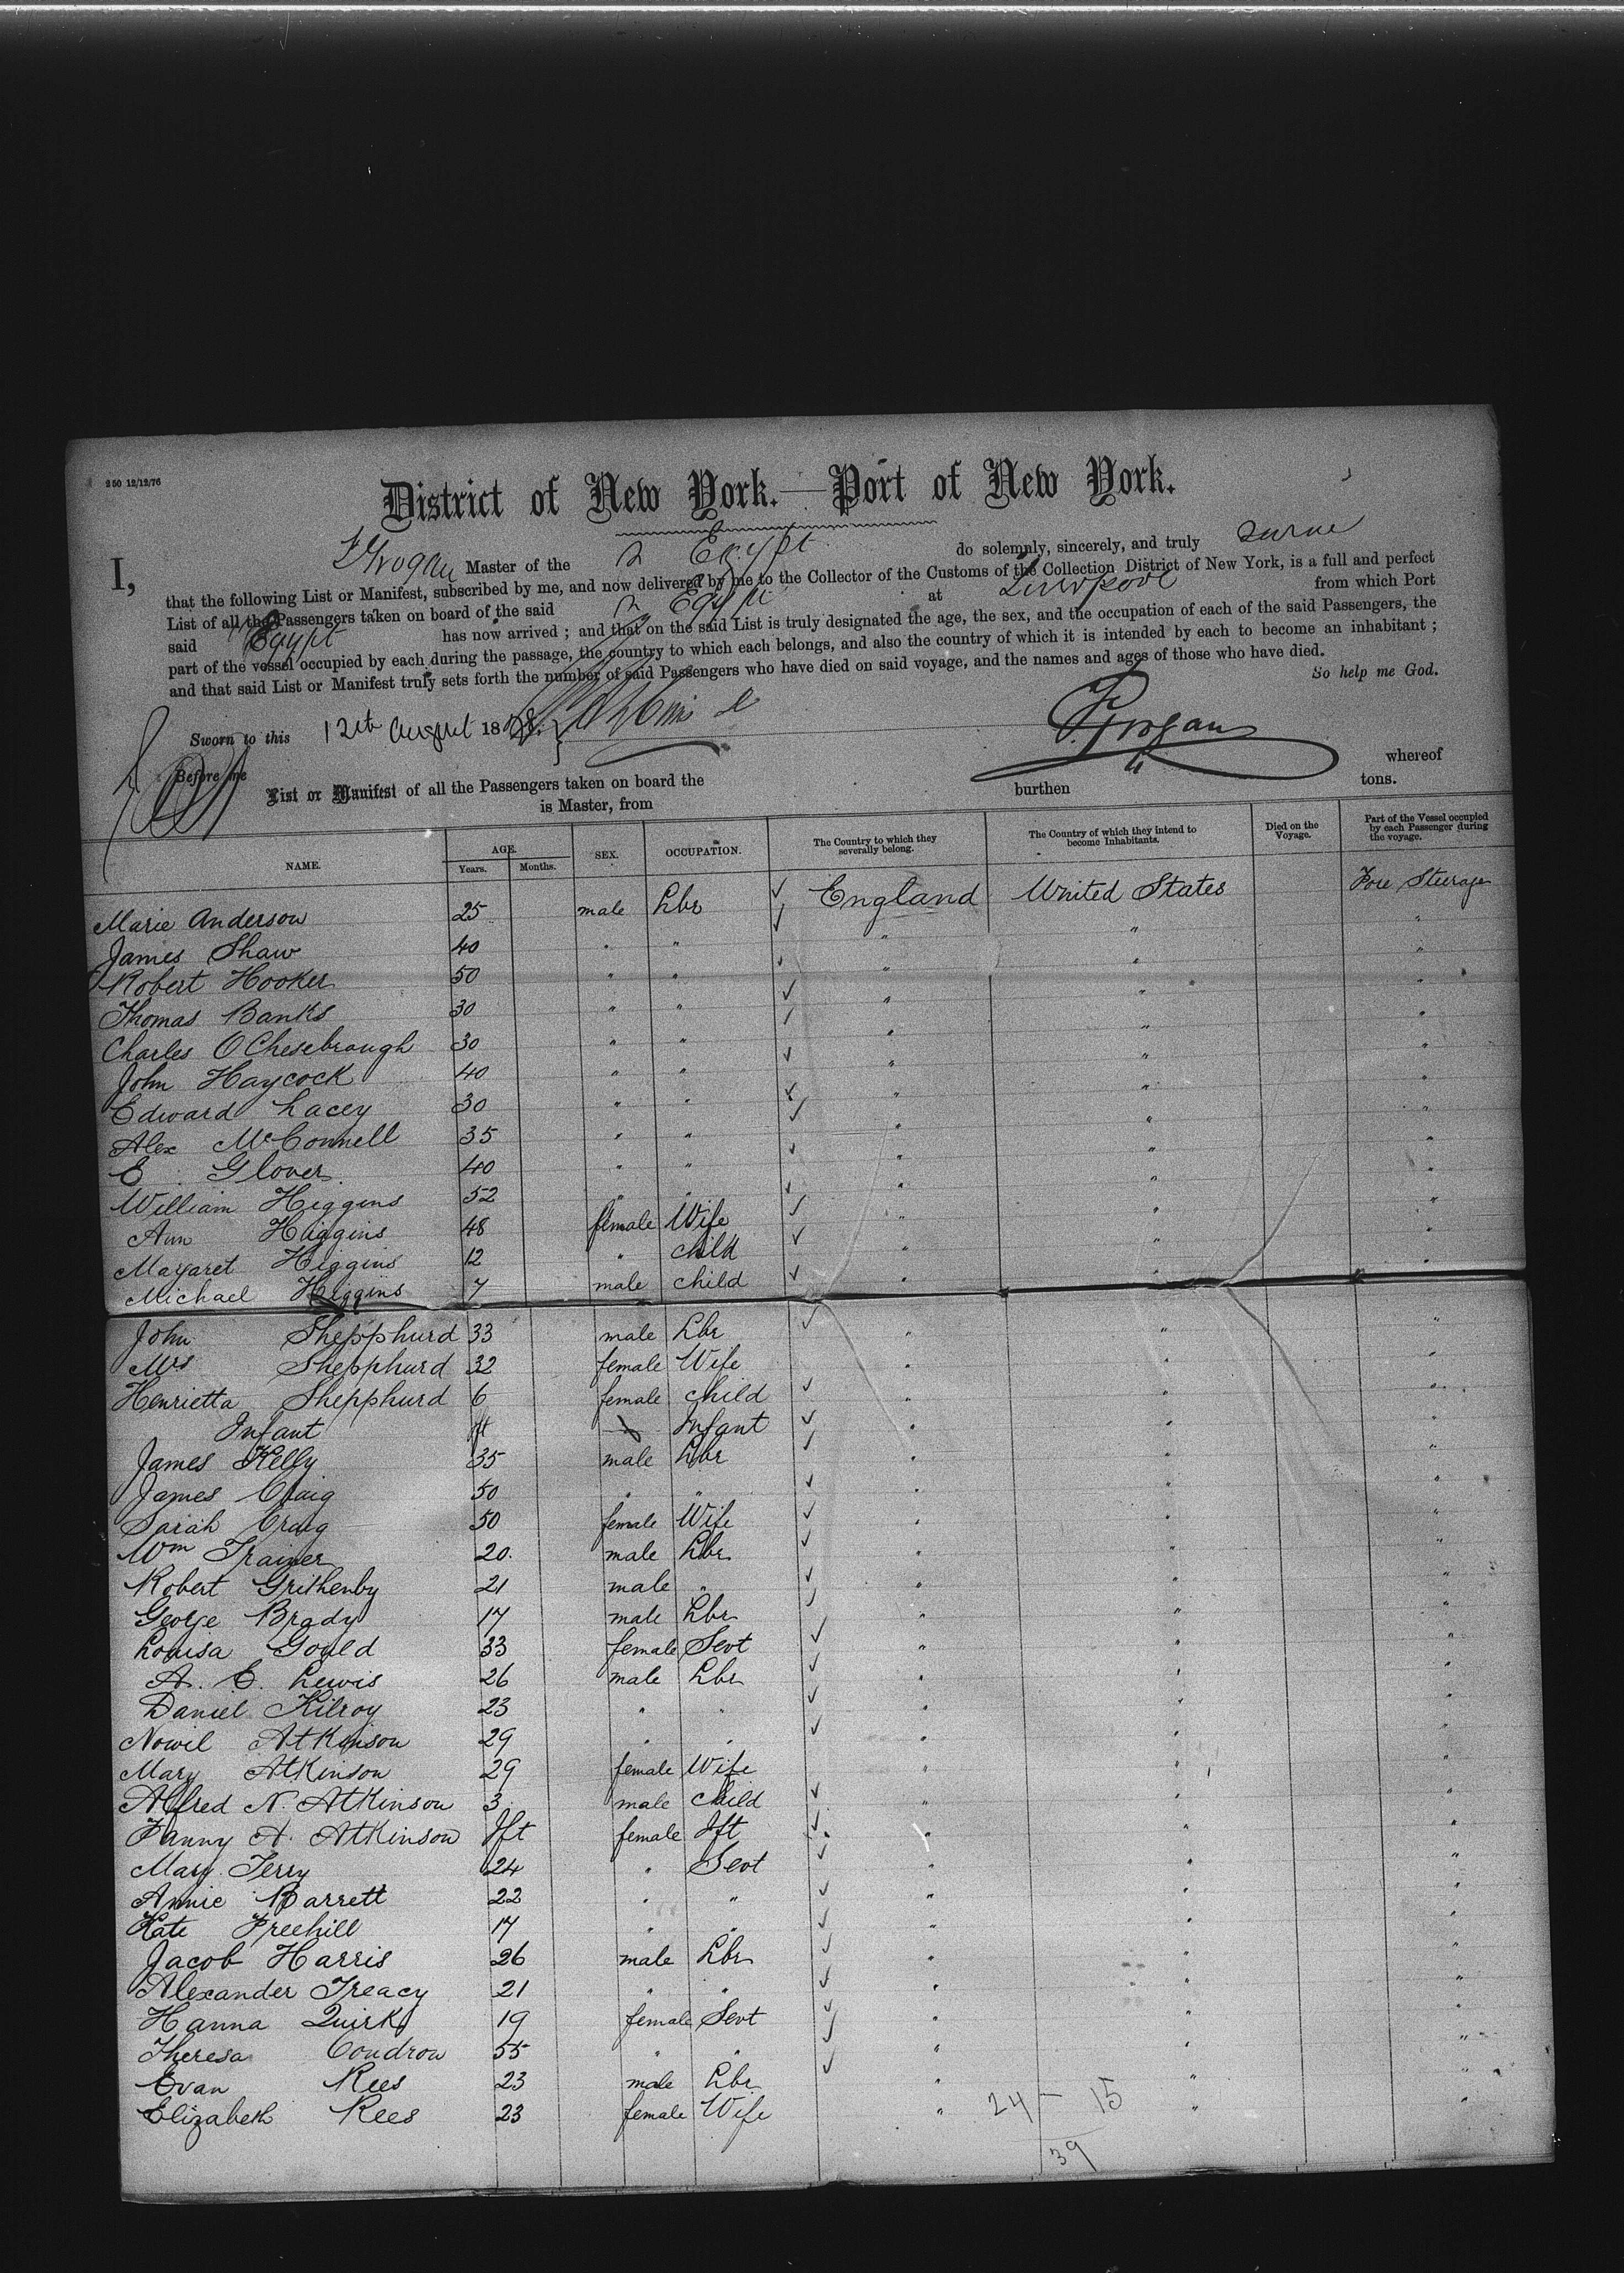 250 12/12/76
District of New York.—Port of New York.
I, F Grogan Master of the S Egypt do solemnly, sincerely, and truly swear
that the following List or Manifest, subscribed by me, and now delivered by me to the Collector of the Customs of the Collection District of New York, is a full and perfect
List of all the Passengers taken on board of the said S Egypt at Liverpool from which Port
said Egypt has now arrived ; and that on the said List is truly designated the age, the sex, and the occupation of each of the said Passengers, the
part of the vessel occupied by each during the passage, the country to which each belongs, and also the country of which it is intended by each to become an inhabitant ;
and that said List or Manifest truly sets forth the number of said Passengers who have died on said voyage, and the names and ages of those who have died.
So help me God.
Sworn to this 12th August 1878. F. Grogan
Before me
List or Manifest of all the Passengers taken on board the whereof
is Master, from burthen tons.
NAME. AGE. Years. Months. SEX. OCCUPATION. The Country to which they severally belong. The Country of which they intend to become Inhabitants. Died on the Voyage. Part of the Vessel occupied by each Passenger during the voyage.
Marie Anderson 25 male Lbr England United States Fore Steerage
James Shaw 40 " " " " "
Robert Hooker 50 " " " " "
Thomas Banks 30 " " " " "
Charles O Chesebrough 30 " " " " "
John Haycock 40 " " " " "
Edward Lacey 30 " " " " "
Alex McConnell 35 " " " " "
E. Glover 40 " " " " "
William Higgins 52 " " " " "
Ann Higgins 48 female Wife " " "
Margaret Higgins 12 " child " " "
Michael Higgins 7 male child " " "
John Shepphurd 33 male Lbr " " "
Mrs Shepphurd 32 female Wife " " "
Henrietta Shepphurd 6 female child " " "
Infant Infant " " "
James Kelly 35 male Lbr " " "
James Craig 50 " " " " "
Sarah Craig 50 female Wife " " "
Wm Trainer 20 male Lbr " " "
Robert Grithenby 21 male " " " "
George Brady 17 male Lbr " " "
Louisa Gould 33 female Sevt " " "
A. E. Lewis 26 male Lbr " " "
Daniel Kilroy 23 " " " " "
Nowil Atkinson 29 " " " " "
Mary Atkinson 29 female Wife " " "
Alfred N. Atkinson 3 male child " " "
Fanny A. Atkinson Ift female Ift " " "
Mary Terry 24 " Sevt " " "
Annie Barrett 22 " " " " "
Kate Freehill 17 " " " " "
Jacob Harris 26 male Lbr " " "
Alexander Treacy 21 " " " " "
Hanna Quirk 19 female Sevt " " "
Theresa Condron 55 " " " " "
Evan Rees 23 male Lbr " " "
Elizabeth Rees 23 female Wife " " "
24 – 15
39